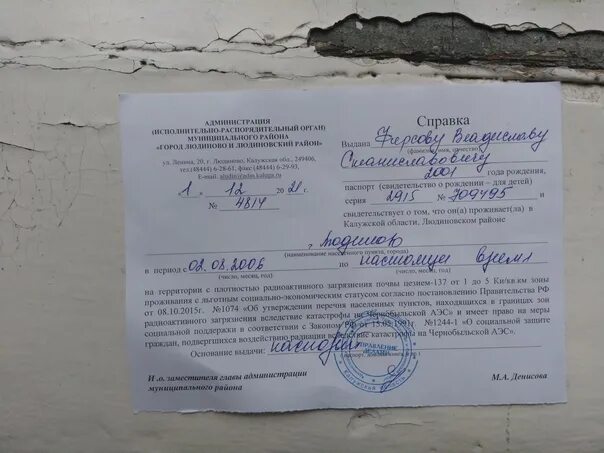 АДМИНИСТРАЦИЯ
(ИСПОЛНИТЕЛЬНО-РАСПОРЯДИТЕЛЬНЫЙ ОРГАН)
МУНИЦИПАЛЬНОГО РАЙОНА
«ГОРОД ЛЮДИНОВО И ЛЮДИНОВСКИЙ РАЙОН»
ул. Ленина, 20, г. Людиново, Калужская обл., 249406,
тел.(48444) 6-28-61, факс (48444) 6-29-93,
«1» 12 2021 г.
№ 4814
Справка
Выдана Фирсову Владиславу
(фамилия, имя, отчество)
Станиславовичу
2001 года рождения,
паспорт (свидетельство о рождении – для детей)
серия 2915 № 709495 и
свидетельствует о том, что он(а) проживает(ла) в
Калужской области, Людиновском районе
г. Людиново
(наименование населенного пункта, города)
в период с 02.08.2006 по настоящее время
(число, месяц, год) (число, месяц, год)
на территории с плотностью радиоактивного загрязнения почвы цезием-137 от 1 до 5 Ки/кв.км зоны
проживания с льготным социально-экономическим статусом согласно постановлению Правительства РФ
от 08.10.2015г. №1074 «Об утверждении перечня населенных пунктов, находящихся в границах зон
радиоактивного загрязнения вследствие катастрофы на Чернобыльской АЭС» и имеет право на меры
социальной поддержки в соответствии с Законом РФ от 15.05.1991г. №1244-1 «О социальной защите
граждан, подвергшихся воздействию радиации вследствие катастрофы на Чернобыльской АЭС».
Основание выдачи: паспорт
УПРАВЛЕНИЕ
И .о. заместителя главы администрации
муниципального района
М.А. Денисова